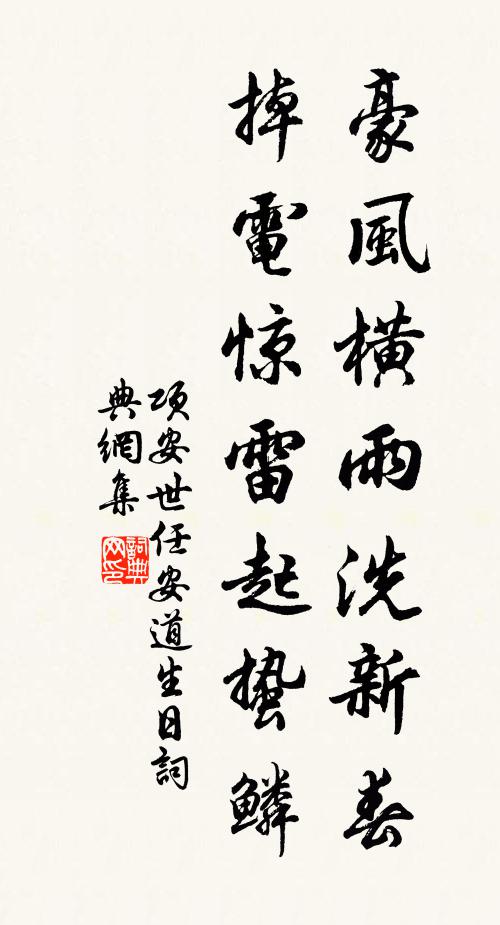 豪風橫雨洗新春
掉電惊雷起蛰鱗
項安世任安道生日詞
典網集
詞典
网印